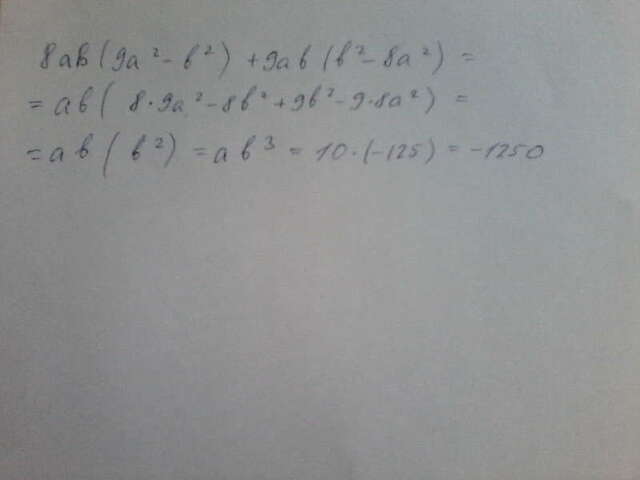 8ab(9a²-b²)+9ab(b²-8a²)=
=ab(8·9a²-8b²+9b²-9·8a²)=
=ab(b²)=ab³=10·(-125)=-1250